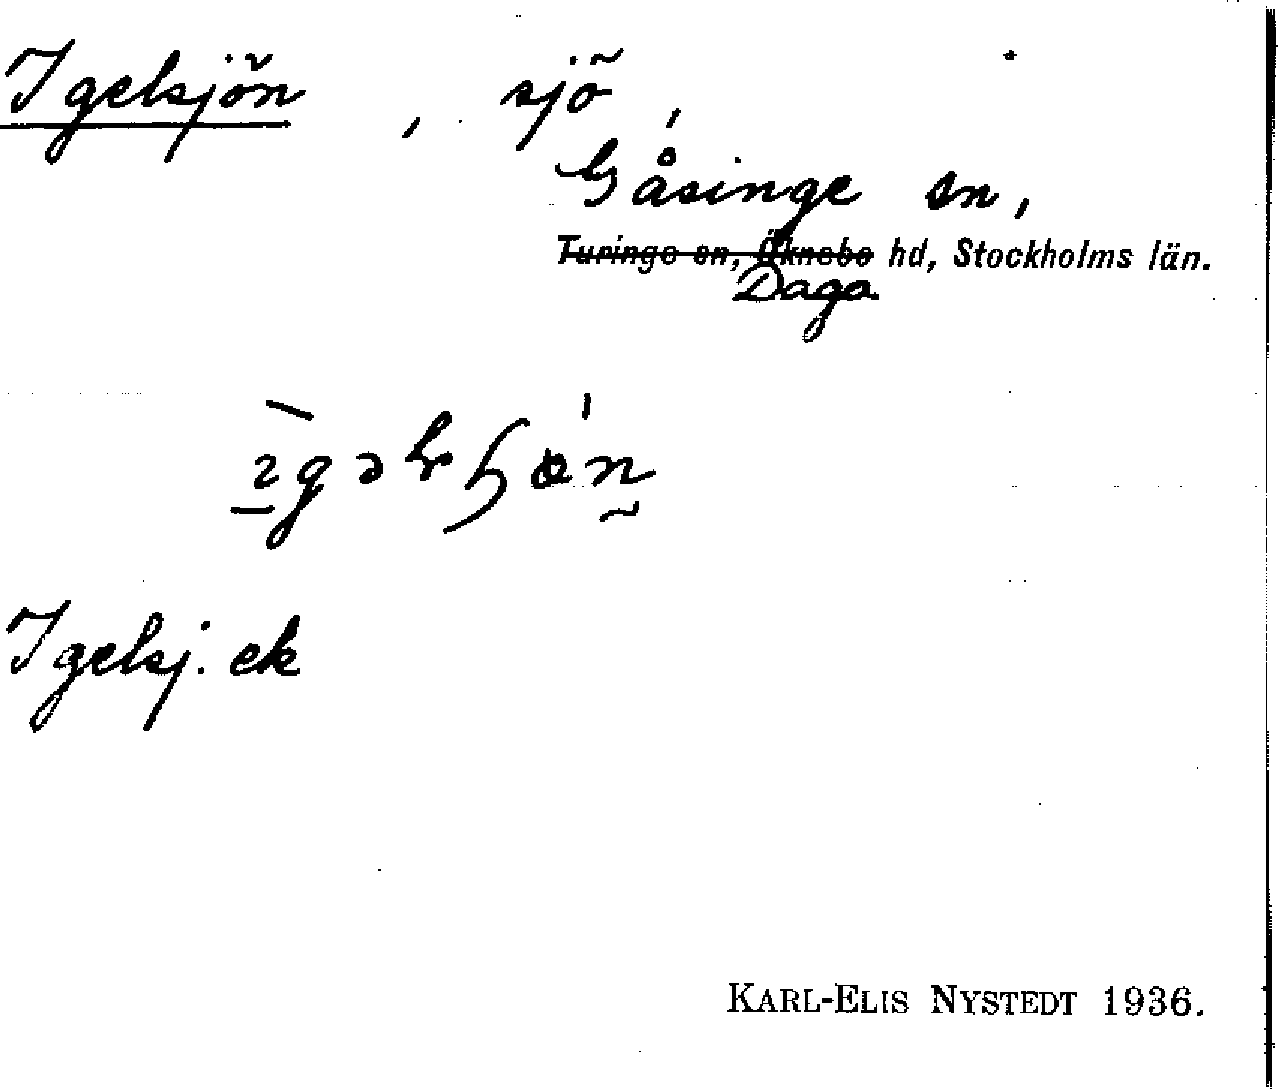 Igelsjön , sjö,
Gåsinge sn,
Turinge sn, Öknebo hd, Stockholms län.
Daga
Igelsj. ek
KARL-ELIS NYSTEDT 1936.